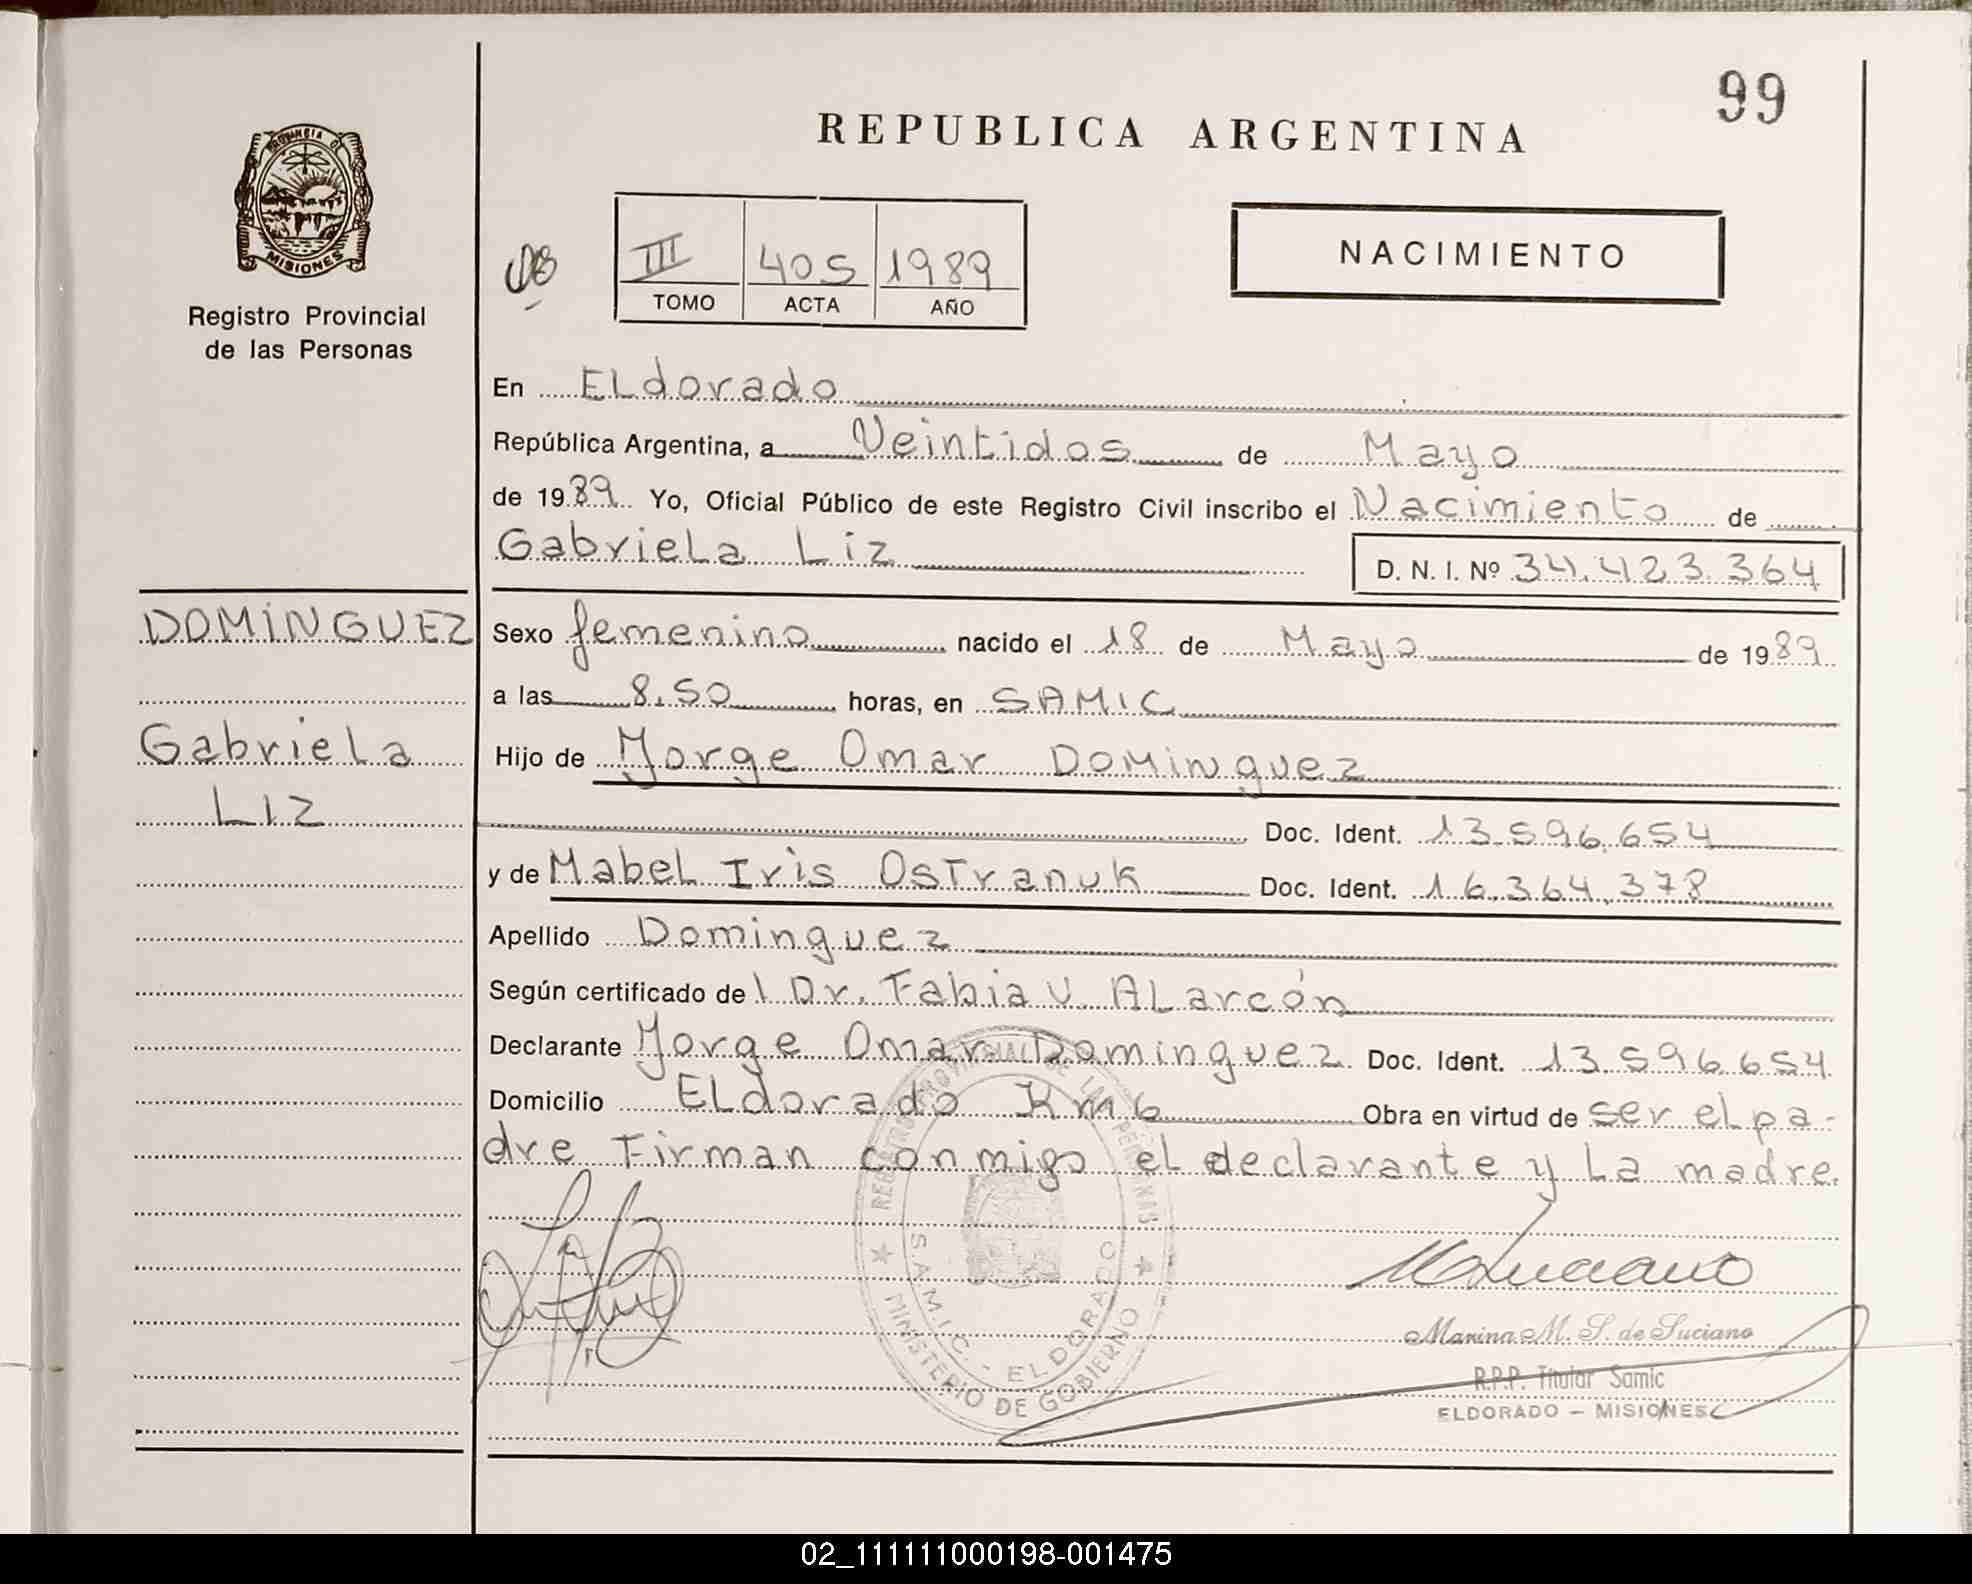 99
REPUBLICA ARGENTINA
PROVINCIA
MISIONES
Registro Provincial
de las Personas
III 405 1989
TOMO ACTA AÑO
NACIMIENTO
En ELdorado
República Argentina, a Veintidos de Mayo
de 1989 Yo, Oficial Público de este Registro Civil inscribo el Nacimiento de
GabrieLa Liz D. N. I. Nº 34.423.364
DOMINGUEZ
GabrieLa
Liz
Sexo femenino nacido el 18 de Mayo de 1989
a las 8.50 horas, en SAMIC
Hijo de Jorge Omar Dominguez
Doc. Ident. 13.596.654
y de MabeL Iris Ostranuk Doc. Ident. 16.364.378
Apellido Dominguez
Según certificado del Dr. Fabia U. ALarcón
Declarante Jorge Omar Dominguez Doc. Ident. 13.596.654
Domicilio ELdorado Km 6 Obra en virtud de ser el pa-
dre Firman conmigo el declarante y La madre.
REGISTRO PROVINCIAL DE LAS PERSONAS
S.A.M.I.C. - ELDORADO
MINISTERIO DE GOBIERNO
Marina M. S. de Suciano
R.P.P. Titular Samic
ELDORADO - MISIONES
02_111111000198-001475